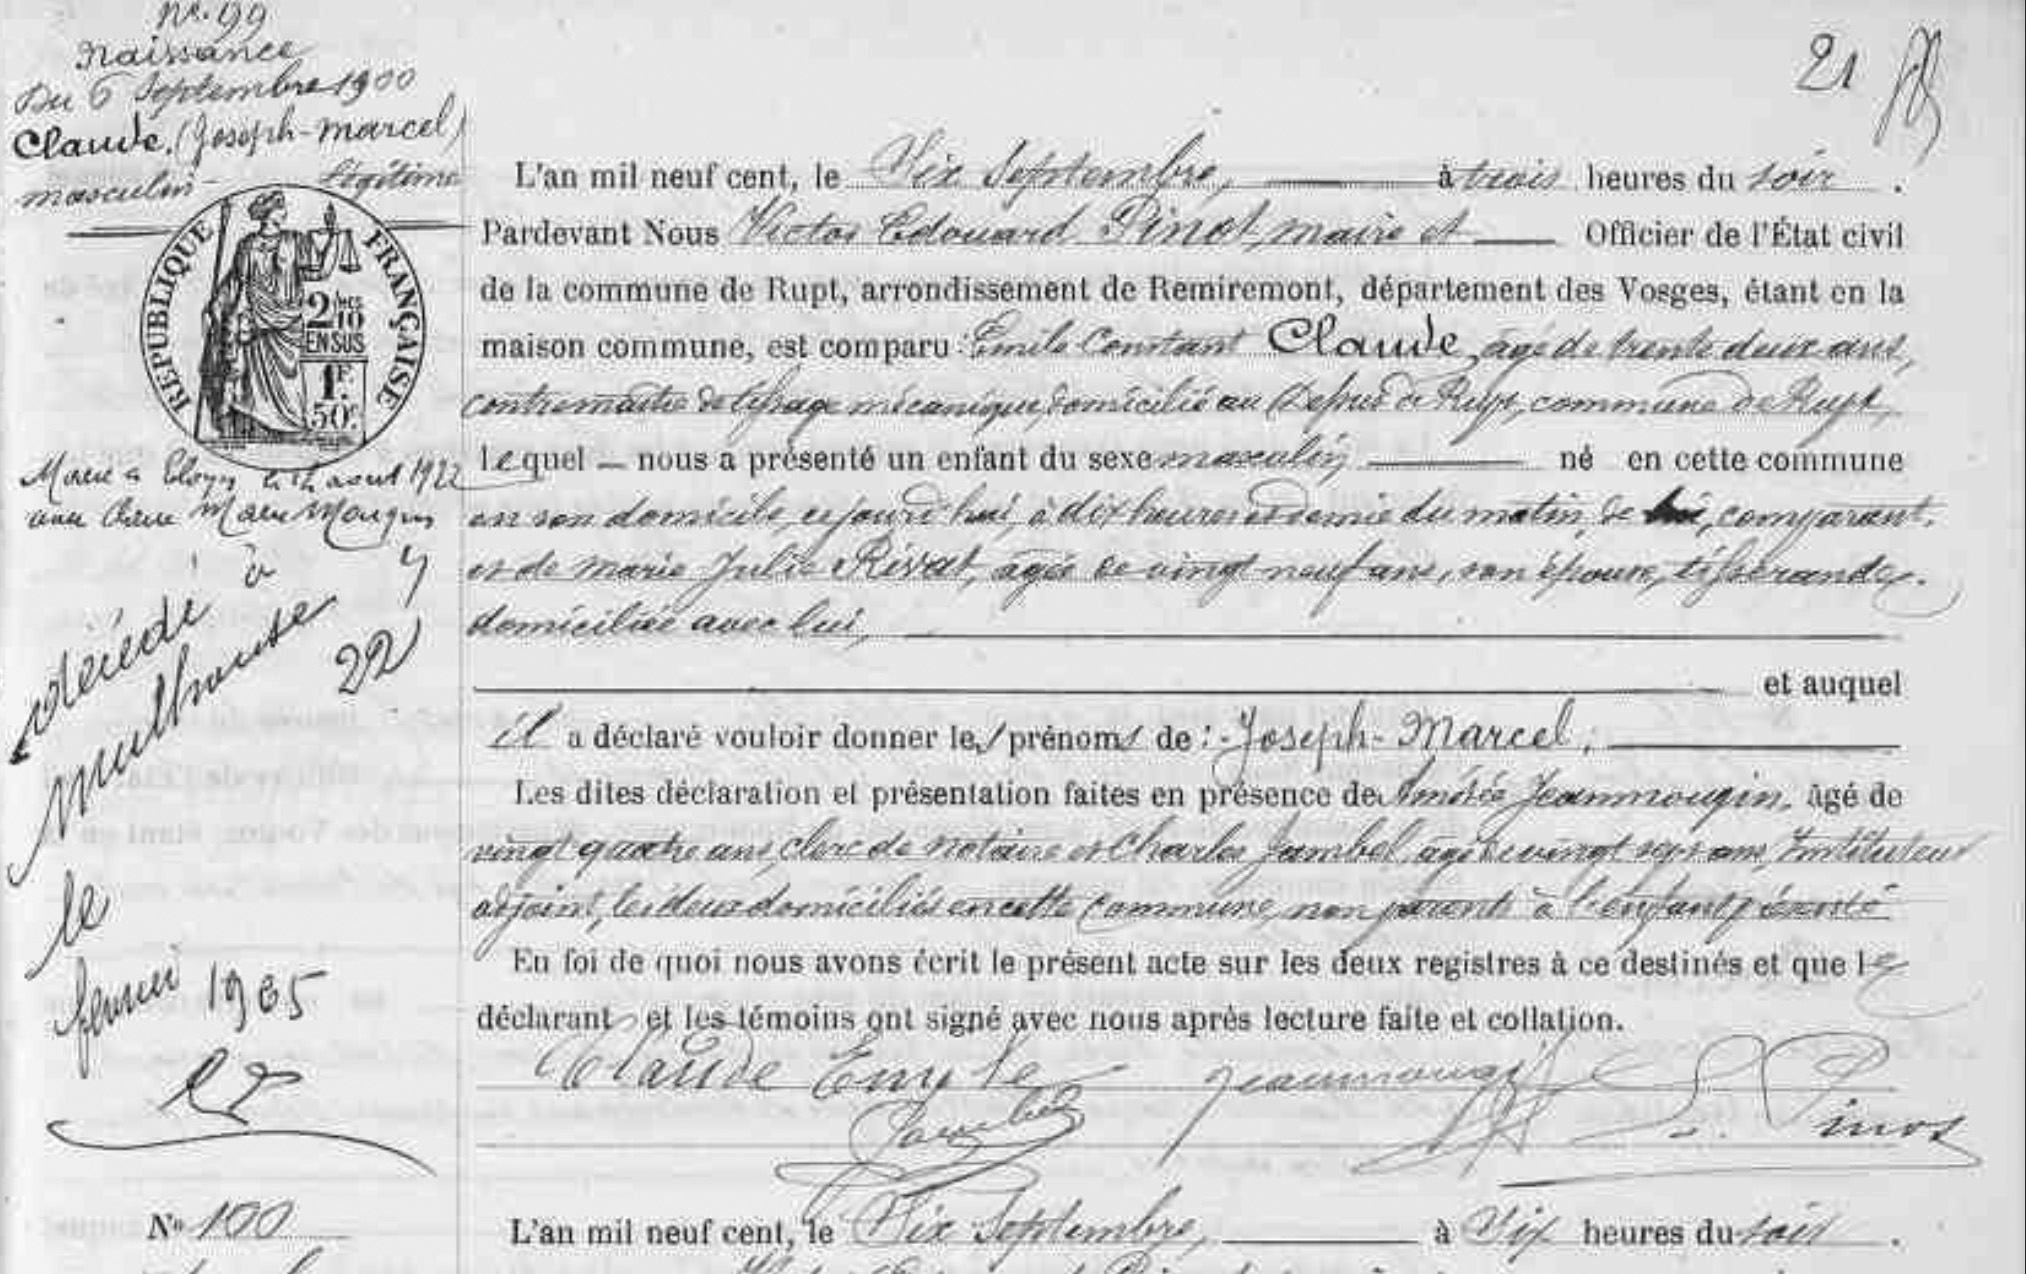 N°. 99
Naissance
Du 6 Septembre 1900
Claude. (Joseph-Marcel)
masculin - Légitime
RÉPUBLIQUE FRANÇAISE
2/10
EN SUS
1F.
50c.
Marié à Eloyes le août 1922
avec Marie Mougin
décédé à
Mulhouse
le 22
février 1965
21
L'an mil neuf cent, le Six Septembre, à trois heures du soir.
Pardevant Nous Victor Edouard Pinot, maire et Officier de l'État civil
de la commune de Rupt, arrondissement de Remiremont, département des Vosges, étant en la
maison commune, est comparu : Emile Constant Claude, âgé de trente deux ans,
contremaître de tissage mécanique, domicilié au de Rupt, commune de Rupt,
lequel nous a présenté un enfant du sexe masculin né en cette commune
en son domicile, cejourd'hui, à dix heures et demie du matin, de lui, comparant,
et de Marie Julie Rivat, âgée de vingt neuf ans, son épouse, tisserande,
domiciliée avec lui,
et auquel
il a déclaré vouloir donner les prénoms de : Joseph-Marcel,
Les dites déclaration et présentation faites en présence de Amédée Jeanmougin, âgé de
vingt quatre ans, clerc de notaire et Charles Jambel, âgé de vingt sept ans, Instituteur
adjoint, les deux domiciliés en cette commune, non parents à l'enfant présenté
En foi de quoi nous avons écrit le présent acte sur les deux registres à ce destinés et que le
déclarant et les témoins ont signé avec nous après lecture faite et collation.
Claude Emyle Jeanmougin Pinot
Jambel
N° 100
L'an mil neuf cent, le Six Septembre, à Six heures du soir.